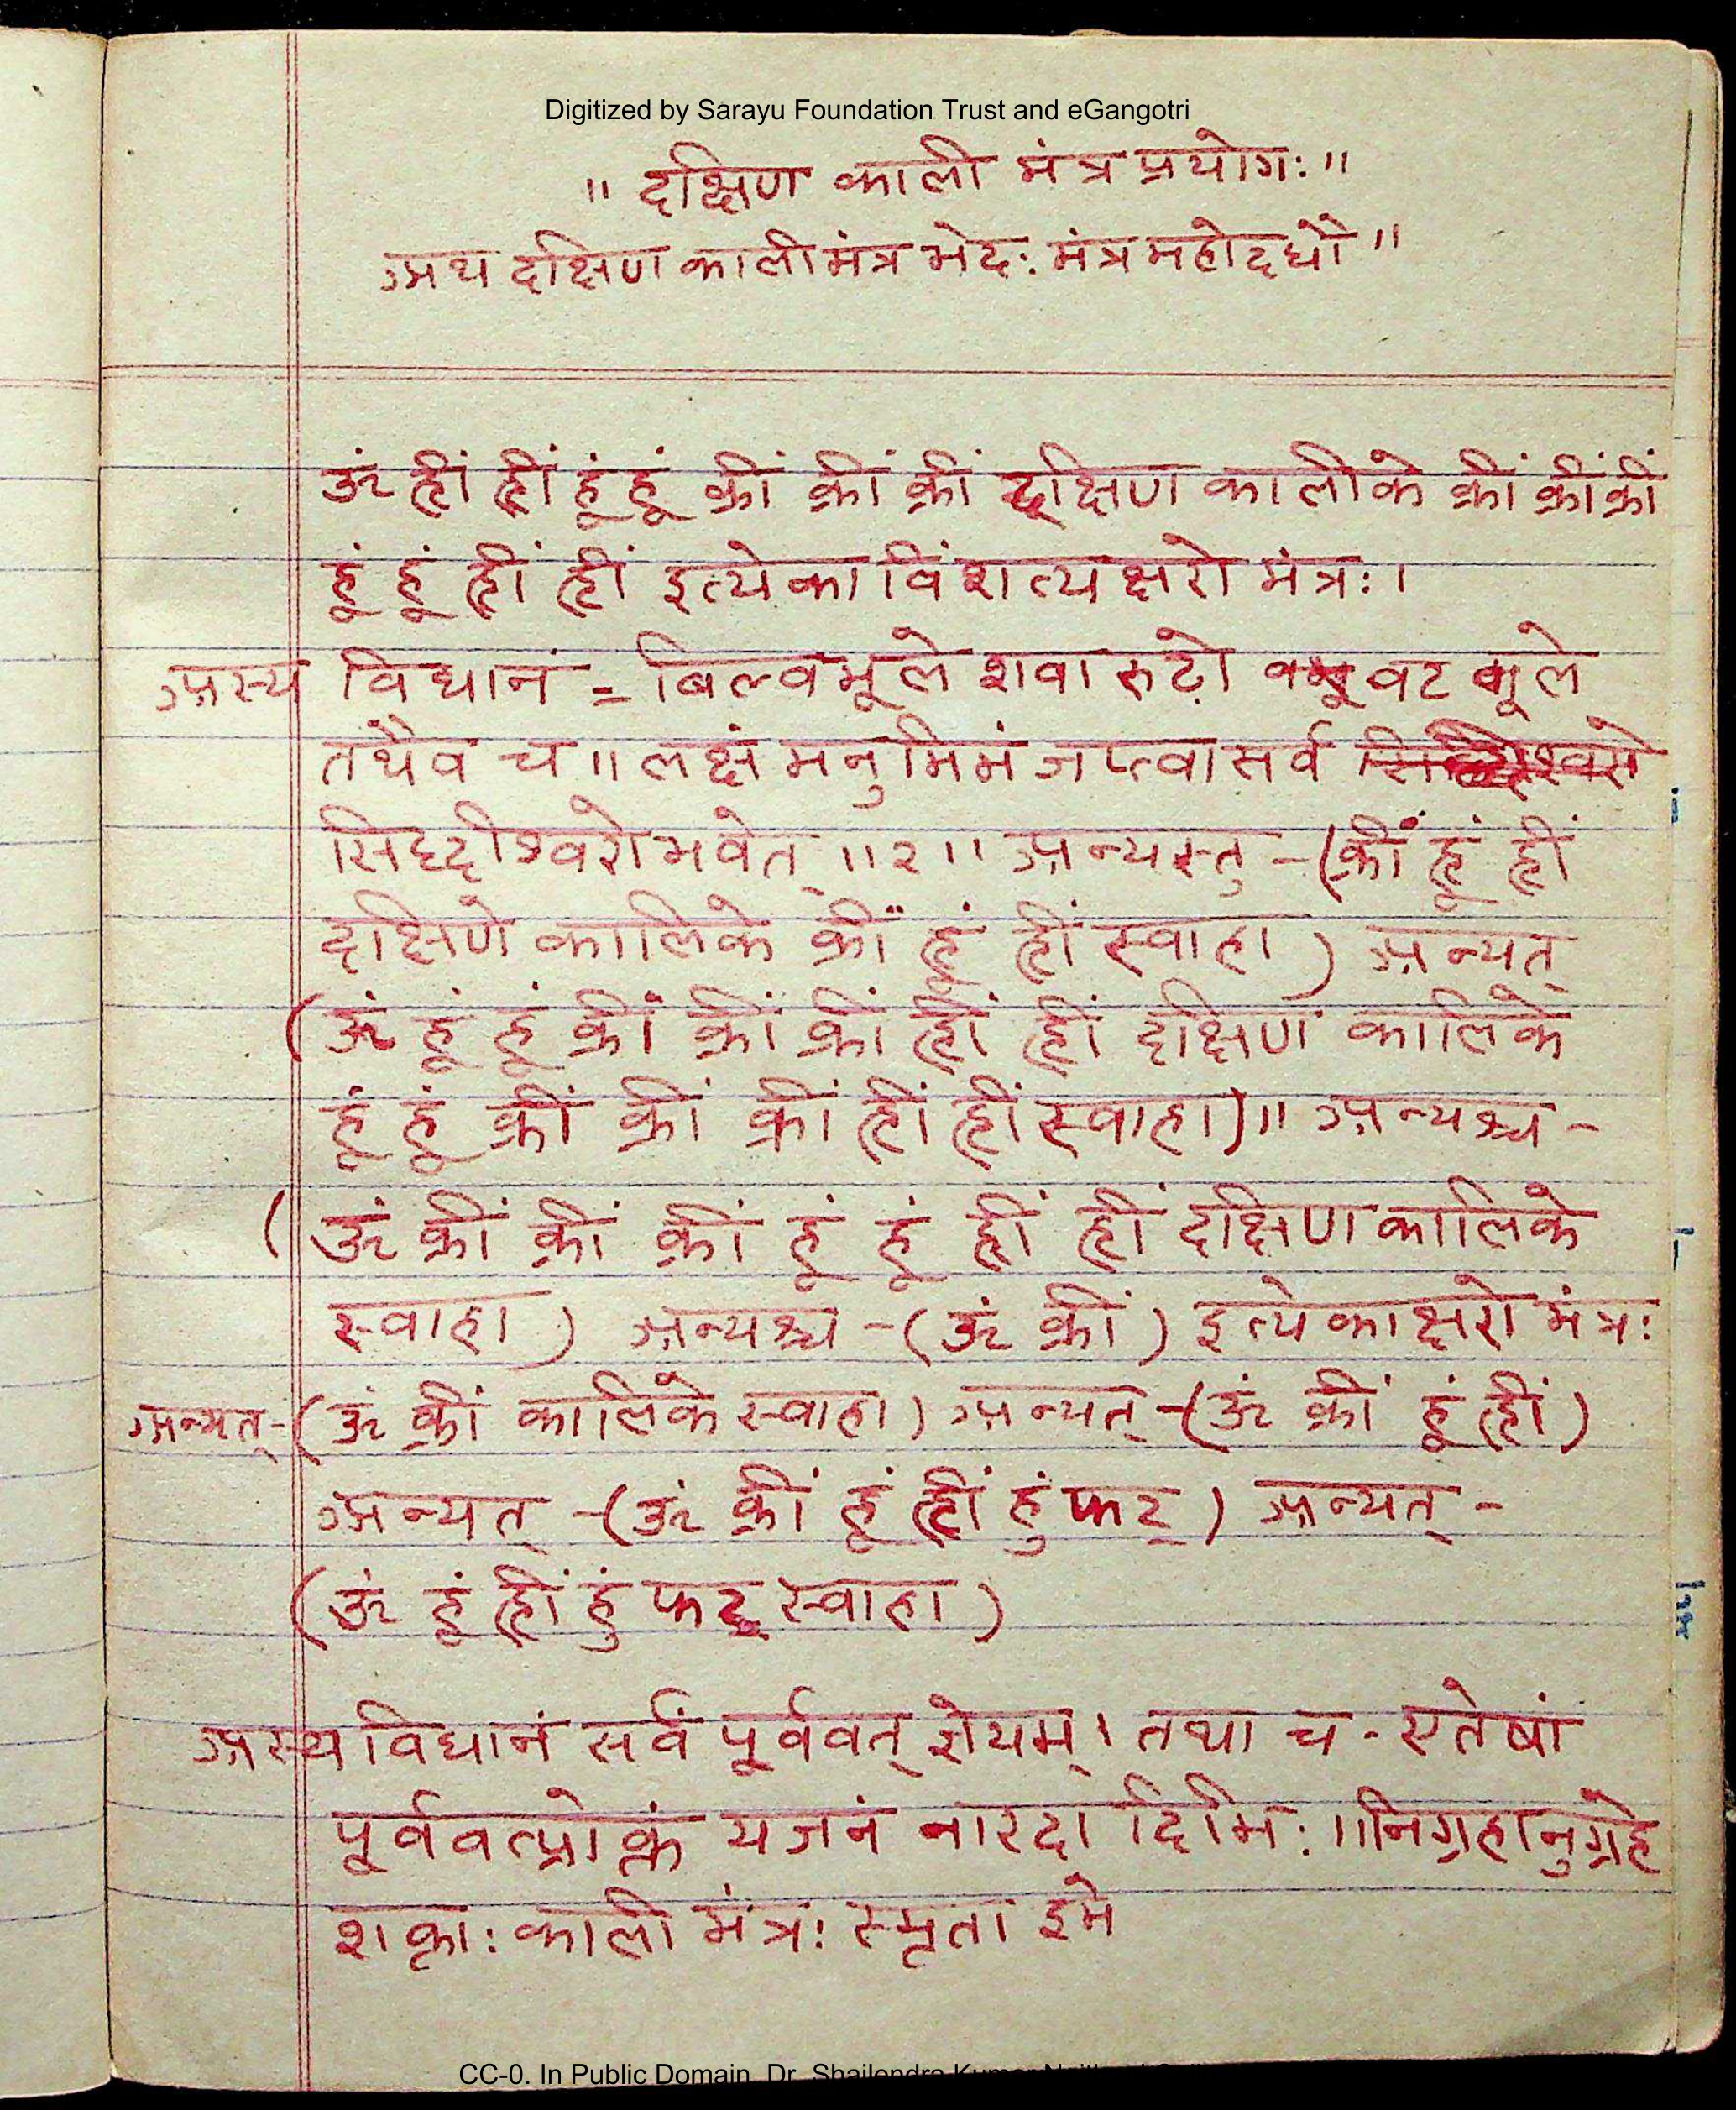 Digitized by Sarayu Foundation Trust and eGangotri
" दक्षिण काली मंत्र प्रयोगः"
अथ दक्षिण काली मंत्र भेदः मंत्र महोदधौ"
ॐ ह्रीं ह्रीं हूं हूं क्रीं क्रीं क्रीं दक्षिण कालीके क्रीं क्रीं क्रीं
हूं हूं ह्रीं ह्रीं इत्येकाविंशत्यक्षरो मंत्रः।
अस्य विधानं = बिल्वमूले शवारुढो वट मूले
तथैव च ॥ लक्षं मनुमिमं जप्त्वा सर्व
सिद्दीश्वरो भवेत् ॥२॥ अन्यस्तु - (क्रीं हूं ह्रीं
दक्षिणे कालिके क्रीं हूं ह्रीं स्वाहा) अन्यत्
(ॐ हूं हूं क्रीं क्रीं क्रीं ह्रीं ह्रीं दक्षिण कालिके
हूं हूं क्रीं क्रीं क्रीं ह्रीं ह्रीं स्वाहा)॥ अन्यश्च -
(ॐ क्रीं क्रीं क्रीं हूं हूं ह्रीं ह्रीं दक्षिण कालिके
स्वाहा) अन्यश्च - (ॐ क्रीं) इत्येकाक्षरो मंत्रः
अन्यत् - (ॐ क्रीं कालिके स्वाहा) अन्यत् - (ॐ क्रीं हूं ह्रीं)
अन्यत् - (ॐ क्रीं हूं ह्रीं हुं फट्) अन्यत् -
(ॐ हूं ह्रीं हुं फट् स्वाहा)
अस्य विधानं सर्वं पूर्ववत् ज्ञेयम्। तथा च - एतेषां
पूर्ववत्प्रोक्तं यजनं नारदादिभिः ॥ निग्रहानुग्रहे
शक्ताः काली मंत्रः स्मृता इमे
CC-0. In Public Domain. Dr. Shailendra Kumar